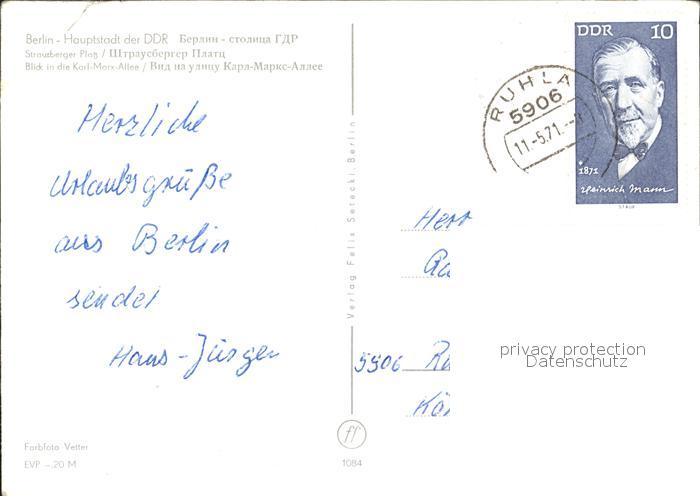 Berlin - Hauptstadt der DDR Берлин - столица ГДР
Strausberger Platz / Штраусбергер Платц
Blick in die Karl-Marx-Allee / Вид на улицу Карл-Маркс-Аллее
Herzliche
Urlaubsgrüße
aus Berlin
sendet
Hans-Jürgen
Farbfoto Vetter
EVP -.20 M
Verlag Felix Setecki, Berlin
ff
1084
DDR 10
* 1871
Heinrich Mann
STAUF
RUHLA
5906
11.-5.71.-
Herr
5906 Ru
Kö
privacy protection
Datenschutz